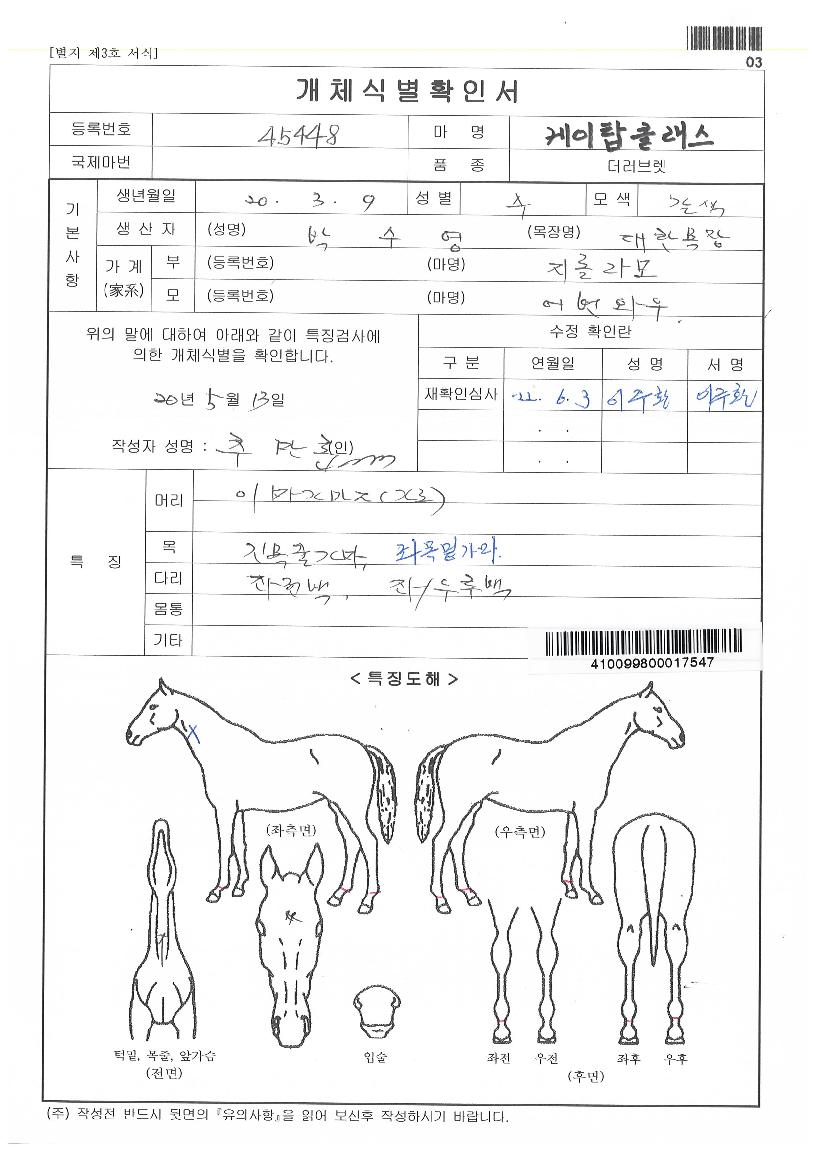 [별지 제3호 서식]
03
개체식별확인서
등록번호 45448 마 명 케이탑클래스
국제마번 품 종 더러브렛
기본사항
생년월일 20. 3. 9 성 별 수 모 색 갈색
생 산 자 (성명) 박 수 영 (목장명) 대한목장
가 계 (家系) 부 (등록번호) (마명) 지롤라모
모 (등록번호) (마명)
위의 말에 대하여 아래와 같이 특징검사에
의한 개체식별을 확인합니다.
20년 5월 13일
작성자 성명 : (인)
수정 확인란
구 분 연월일 성 명 서 명
재확인심사 22. 6. 3 이주환 이주환
. .
. .
특 징
머리
목 좌목밑가마.
다리
몸통
기타
410099800017547
< 특징도해 >
(좌측면) (우측면)
턱밑, 목줄, 앞가슴
(전면)
입술
좌전 우전 좌후 우후
(후면)
(주) 작성전 반드시 뒷면의 『유의사항』을 읽어 보신후 작성하시기 바랍니다.